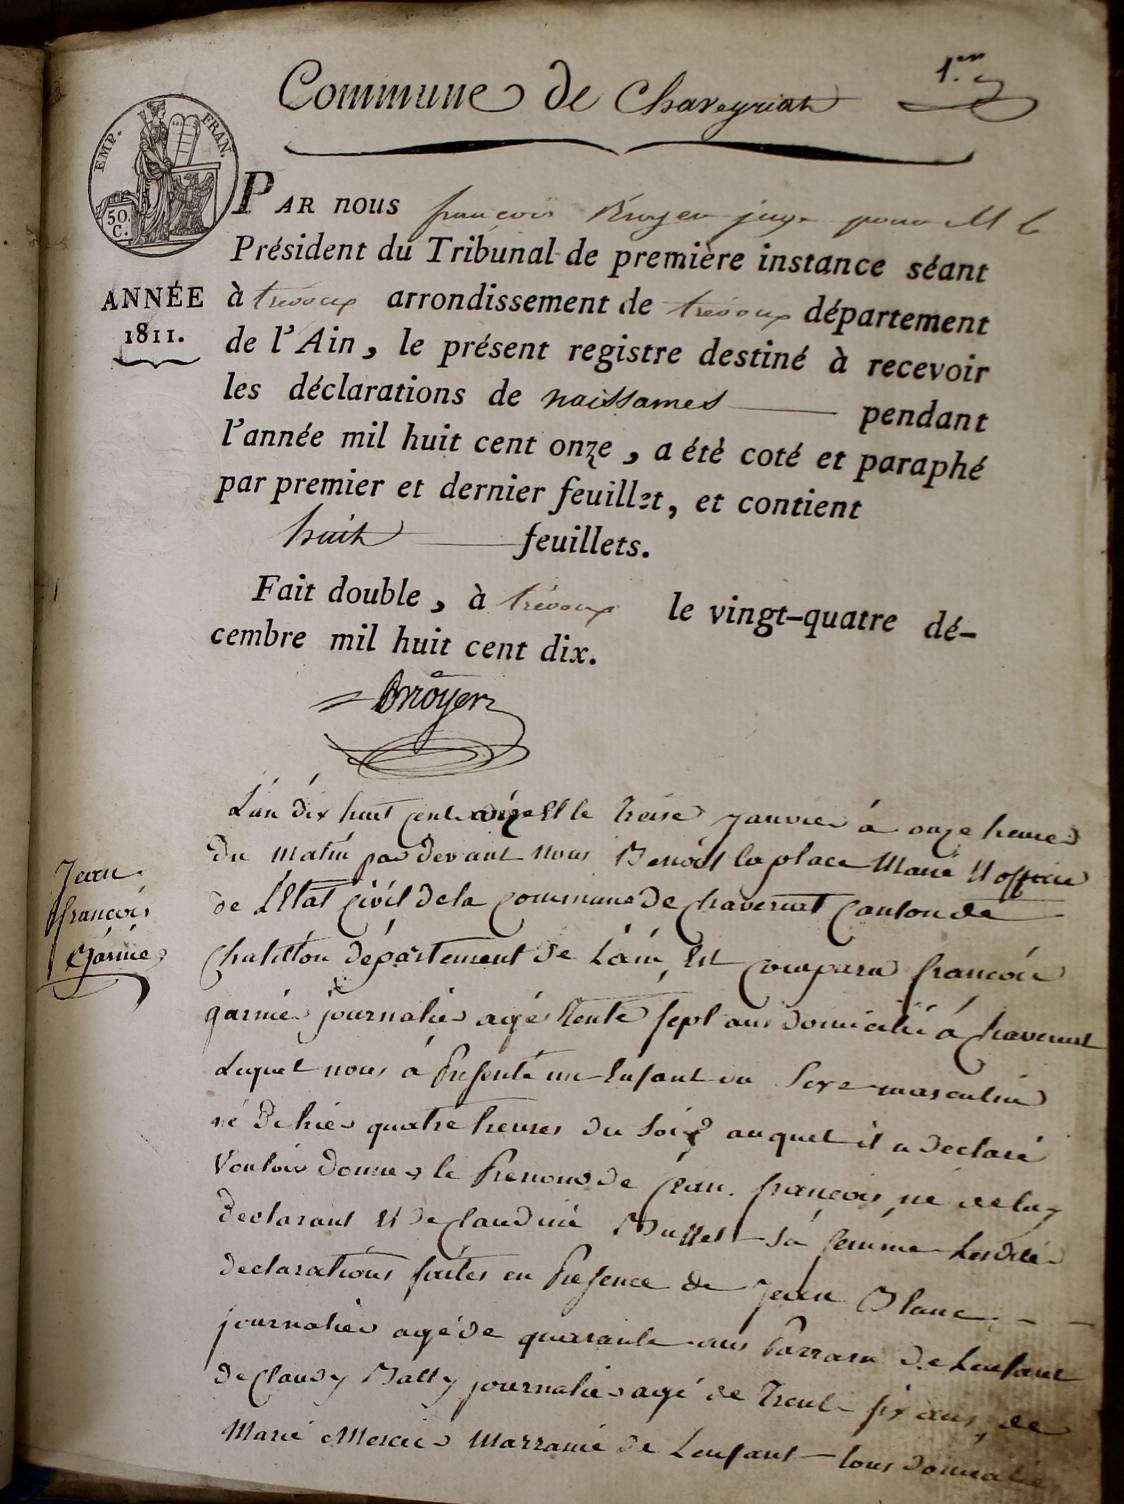 Commune de Chaveyriat
1.er
EMP. FRAN.
50 C.
ANNÉE
1811.
PAR nous françois Broyer juge pour M le
Président du Tribunal de première instance séant
à trévoux arrondissement de trévoux département
de l'Ain, le présent registre destiné à recevoir
les déclarations de naissances pendant
l'année mil huit cent onze, a été coté et paraphé
par premier et dernier feuillet, et contient
huit feuillets.
Fait double, à trévoux le vingt-quatre dé-
cembre mil huit cent dix.
Broyer
Jean
françois
Garnie
L'an dix huit cent onze Et le Treise Janvier à onze heures
Du matin par devant nous Benoit laplace Maire officie
de L'Etat Civil de la commune de Chaveriat Canton de
Chatillon département de Lain, Est comparu françois
garnie journalie agé trente sept ans domicilié à Chaveriat
Lequel nous à Presenté un Enfant du Sexe masculin
né de hier quatre heures du Soir auquel il a declaré
Vouloir donner le Prenom de Jean françois, né de luy
declarant Et De Claudine Buffet Sa femme Lesdite
declarations faites en Presence de Jean Blanc
journalie agé de quarante ans Parrain de Lenfant
de Claudy Bally journalie agé de Trente six ans, de
Marie Mercie Marraine de Lenfant tous domicilie